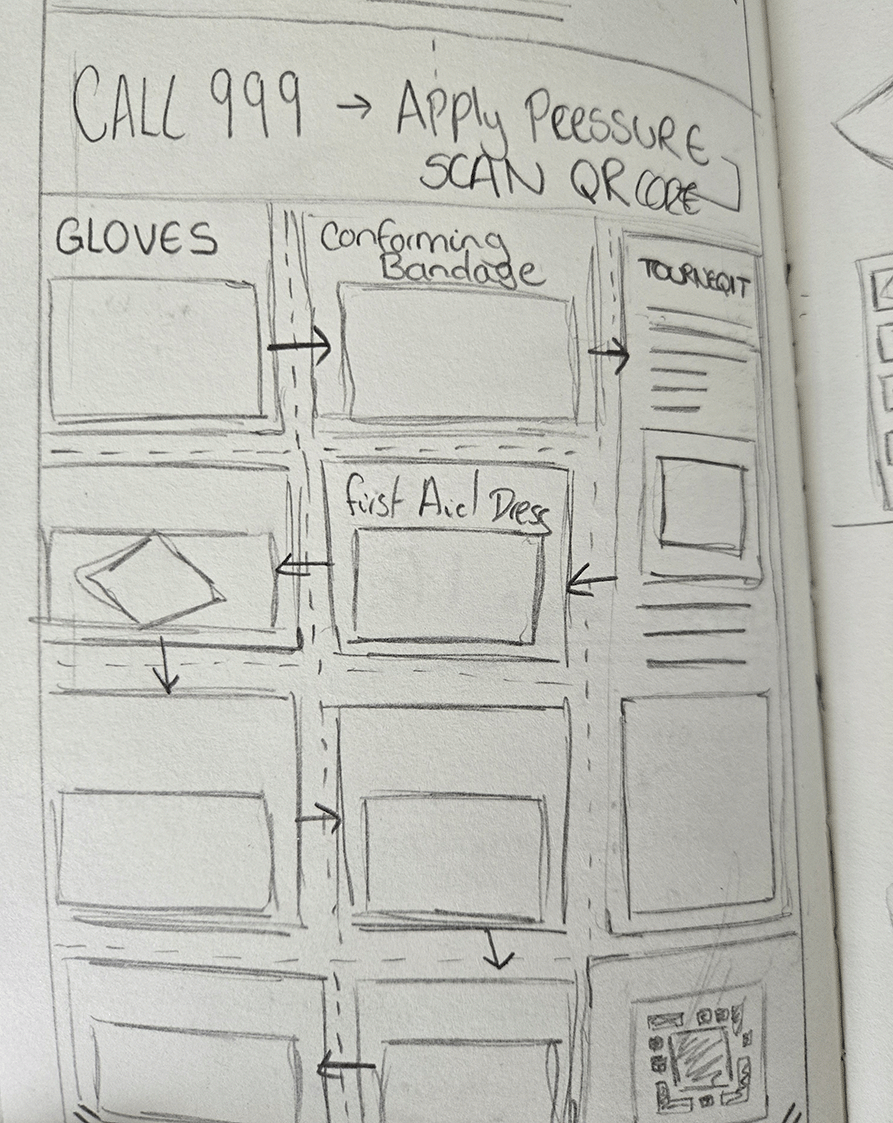 CALL 999 → Apply PRESSURE
SCAN QR CODE
GLOVES
Conforming
Bandage
TOURNEQIT
first Aid Dress